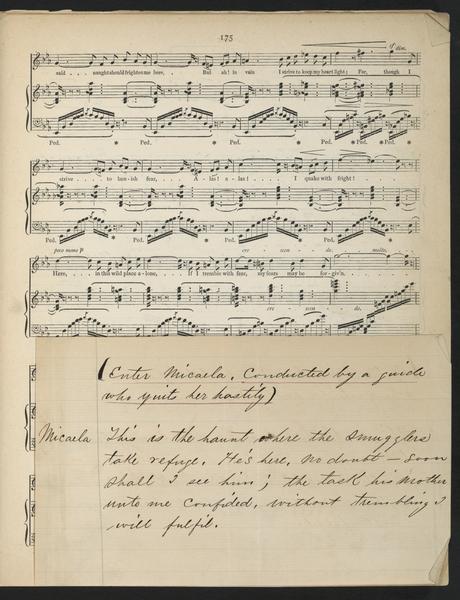 175
dim.
said . . . nought should frighten me here, . But ah! in vain I strive to keep my heart light; For, though I
Ped. Ped. * Ped. * Ped. * Ped. * Ped. *
strive . . . to banish fear, . . A . las! a . las! . . . . I quake with fright!
Ped. * Ped. * Ped. * Ped. *
poco meno p cre - scen - do. molto.
Here, . . . in this wild place a - lone, . . If I tremble with fear, my fears may be for - giv'n. . . .
cre - scen - do.
(Enter Micaela, conducted by a guide
who quits her hastily)
Micaela This is the haunt where the smugglers
take refuge. He's here, no doubt – soon
shall I see him; the task his Mother
unto me confided, without trembling I
will fulfil.